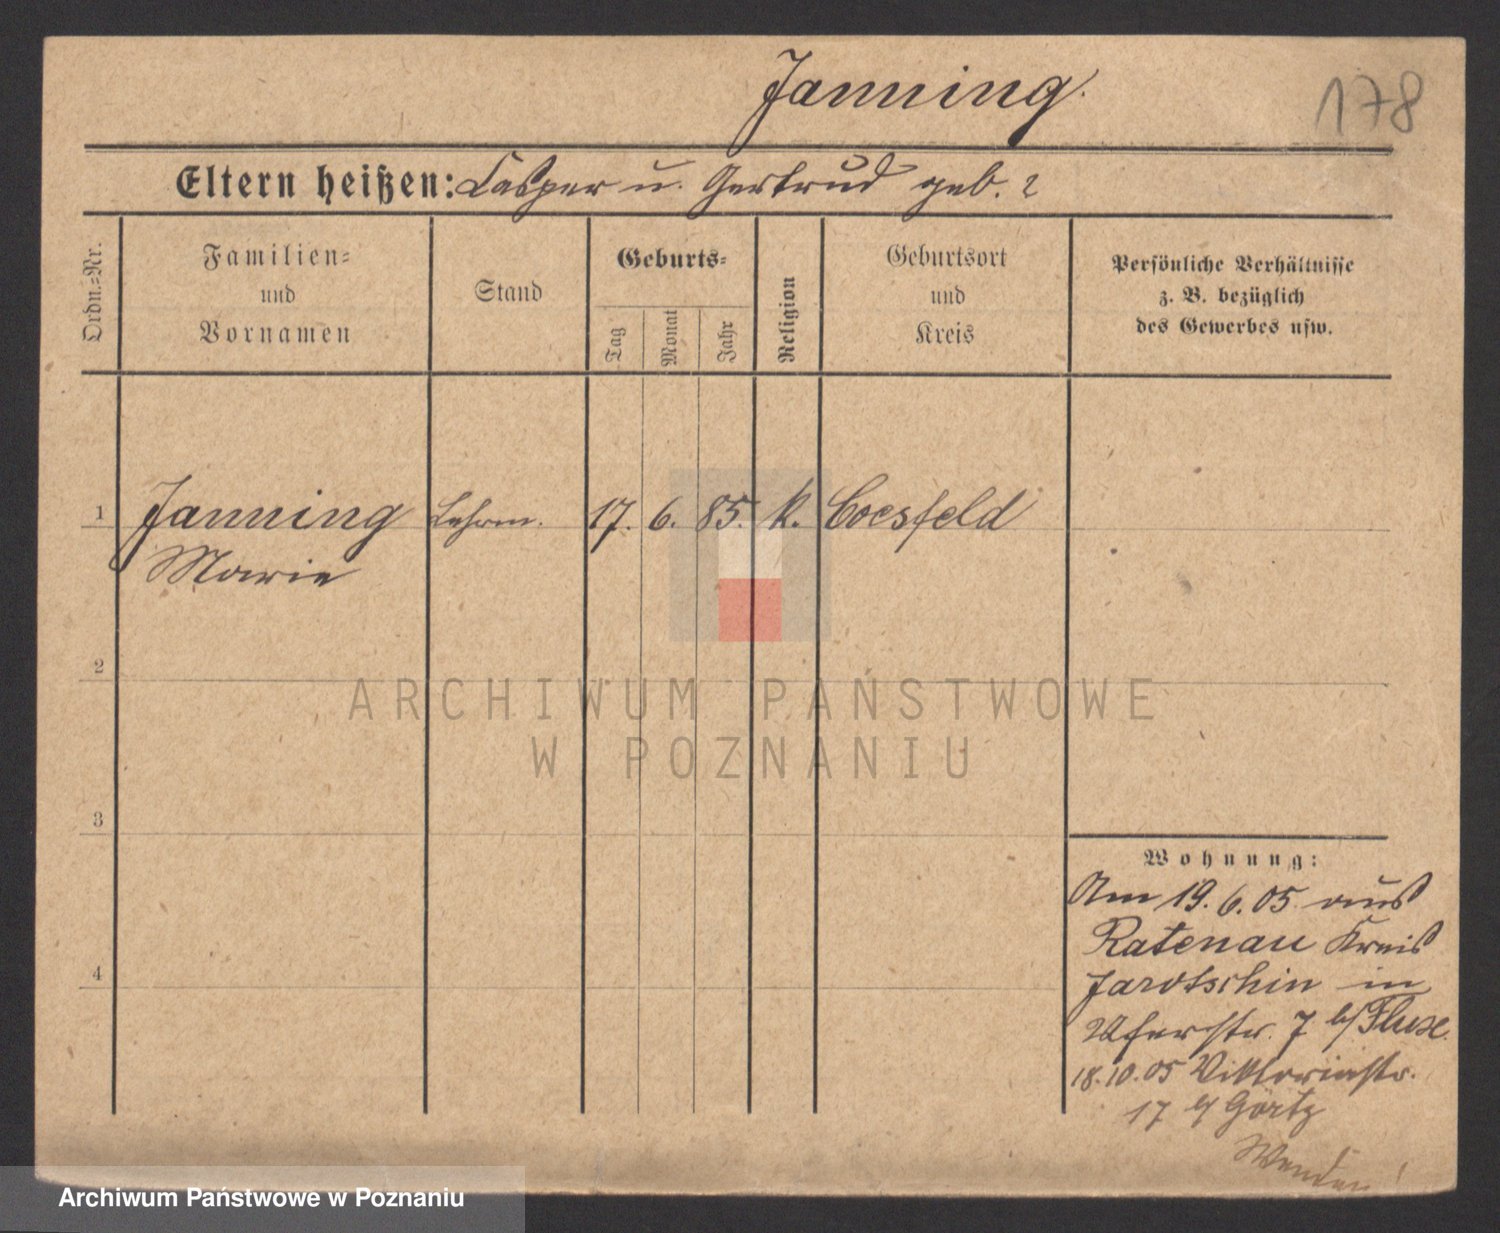 Janning.
178
Eltern heißen: Casper u. Gertrud geb. ?
Ordn.-Nr.
Familien-
und
Vornamen
Stand
Geburts-
Tag
Monat
Jahr
Religion
Geburtsort
und
Kreis
Persönliche Verhältnisse
z. B. bezüglich
des Gewerbes usw.
1 Janning Lehrn. 17. 6. 85. k. Coesfeld
Marie
2
ARCHIWUM PAŃSTWOWE
W POZNANIU
3
Wohnung:
Am 19. 6. 05 aus
Ratenau Kreis
4
Jarotschin in
Uferstr. 7 b/
18.10.05 Viktoriastr.
17 b/ Görtz
Wenden!
Archiwum Państwowe w Poznaniu